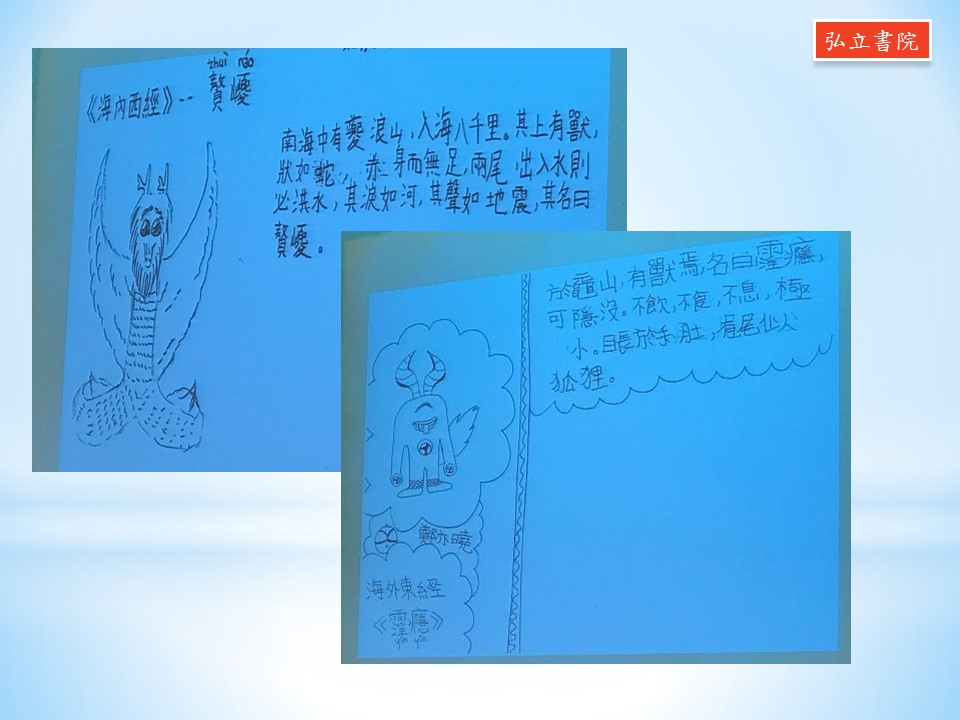 弘立書院
zhuì náo
《海內西經》-- 贅巎
南海中有夔浪山，入海八千里。其上有獸，
狀如蛇，赤身而無足，兩尾 出入水則
必洪水，其淚如河，其聲如地震，其名曰
贅巎。
於 山，有獸焉，名曰霪癮，
可隱沒。不飲，不食，不息，極
小。目長於手、肚，有尾似
狐狸。
海外東經
《霪癮》
yín yǐn